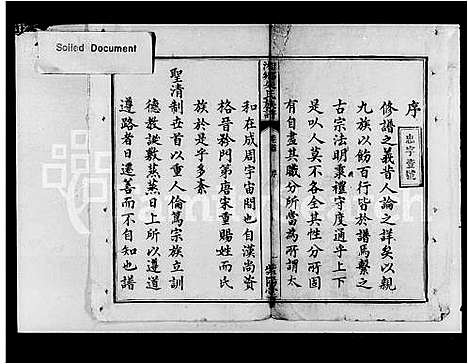 Soiled Document
序
忠字壹號
修譜之義昔人論之詳矣以親
九族以飭百行皆於譜焉繫之
古宗法明衷禮守度通乎上下
是以人莫不各全其性分所固
有自盡其職分所當為所謂太
和在成周宇宙間也自漢尚資
格晉矜門第唐宋重賜姓而氏
族於是乎多紊
聖清制世首以重人倫篤宗族立訓
德教誕敷蒸蒸日上所以遵道
遵路者日遷善而不自知也譜